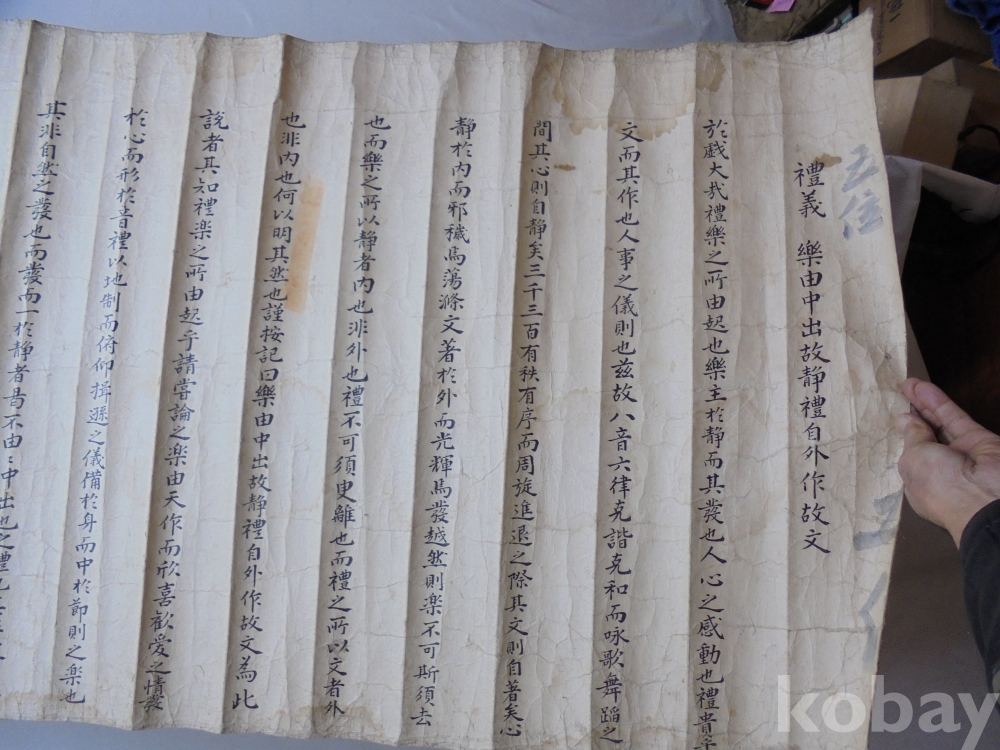 五位
禮義 樂由中出故静禮自外作故文
於戲大哉禮樂之所由起也樂主於静而其發也人心之感動也禮貴乎
文而其作也人事之儀則也兹故八音六律克諧克和而咏歌舞蹈之
間其心則自静矣三千三百有秩有序而周旋進退之際其文則自著矣心
静於内而邪穢焉蕩滌文著於外而光輝焉發越然則楽不可斯須去
也而樂之所以静者内也非外也禮不可須臾離也而禮之所以文者外
也非内也何以明其然也謹按記曰樂由中出故静禮自外作故文為此
說者其知禮樂之所由起乎請嘗論之楽由天作而欣喜歡愛之情發
於心而形於音禮以地制而俯仰揖遜之儀備於身而中於節則之楽也
其非自然之發也而發而一於静者曷不由:中出也之禮也
kobay